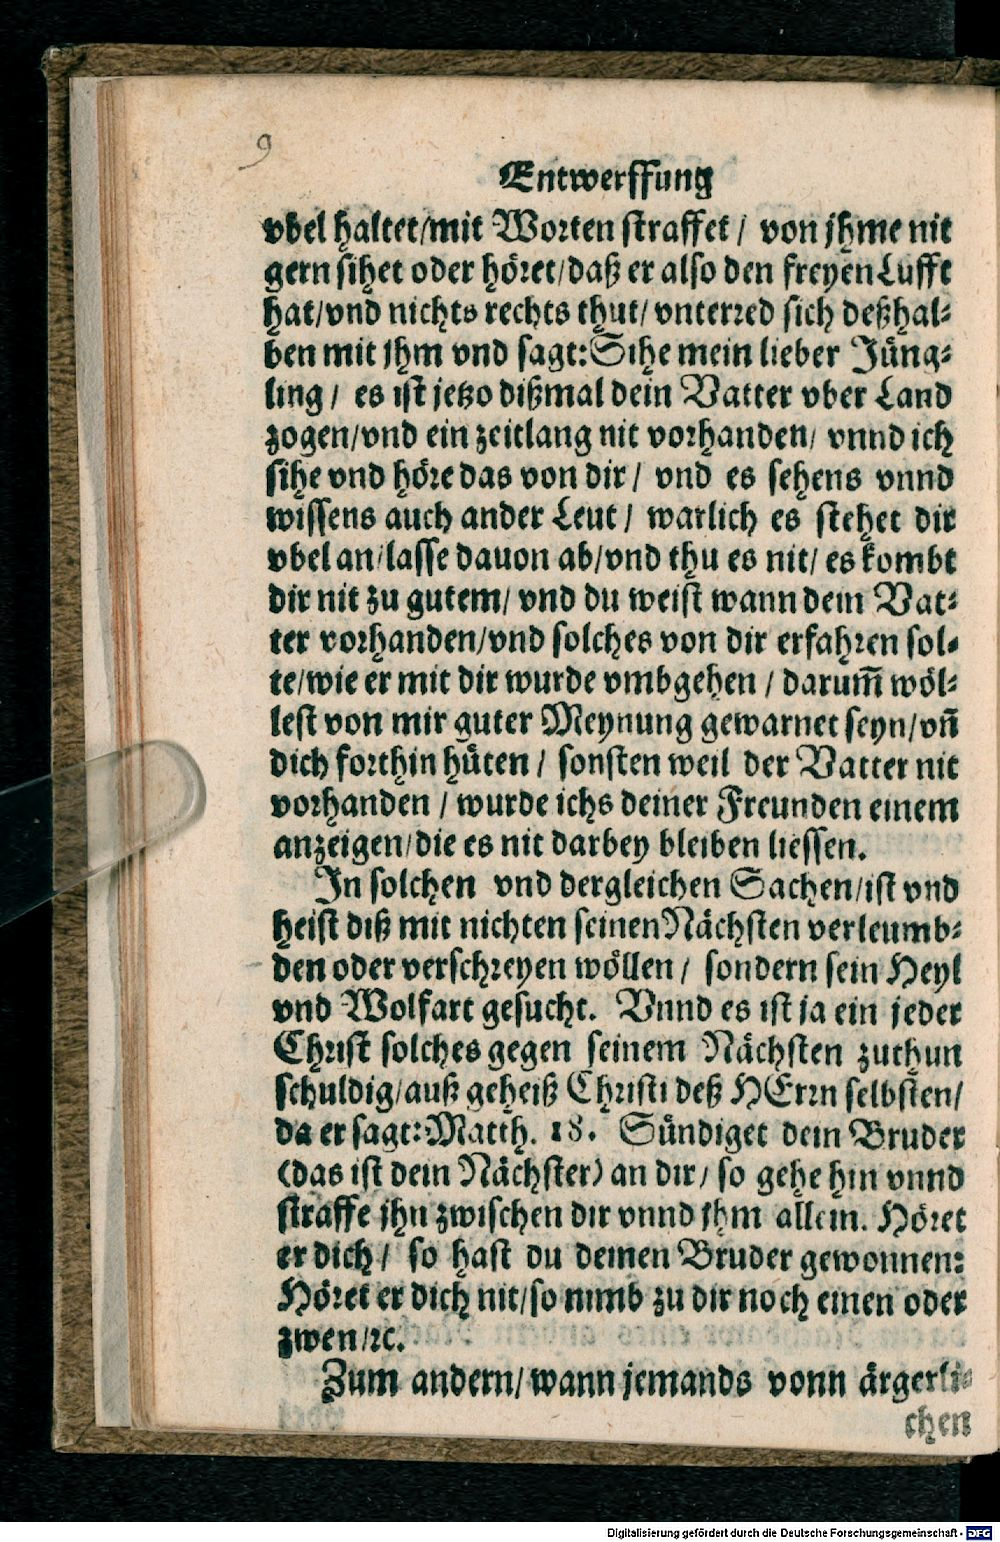 9
Entwerffung
vbel haltet/mit Worten straffet / von jhme nit
gern sihet oder höret/daß er also den freyen Lufft
hat/vnd nichts rechts thut/ vnterred sich deßhal⸗
ben mit jhm vnd sagt: Sihe mein lieber Jüng⸗
ling / es ist jetzo dißmal dein Vatter vber Land
zogen/vnd ein zeitlang nit vorhanden/ vnnd ich
sihe vnd höre das von dir / vnd es sehens vnnd
wissens auch ander Leut / warlich es stehet dir
vbel an/lasse dauon ab/vnd thu es nit/ es kombt
dir nit zu gutem/ vnd du weist wann dein Vat⸗
ter vorhanden/vnd solches von dir erfahren sol⸗
te/wie er mit dir wurde vmbgehen / darum̃ wöl⸗
lest von mir guter Meynung gewarnet seyn/vñ
dich forthin hüten / sonsten weil der Vatter nit
vorhanden / wurde ichs deiner Freunden einem
anzeigen/die es nit darbey bleiben liessen.
In solchen vnd dergleichen Sachen/ist vnd
heist diß mit nichten seinen Nächsten verleumb⸗
den oder verschreyen wöllen / sondern sein Heyl
vnd Wolfart gesucht. Vnnd es ist ja ein jeder
Christ solches gegen seinem Nächsten zuthun
schuldig/auß geheiß Christi deß HErrn selbsten/
da er sagt: Matth. 18. Sündiget dein Bruder
(das ist dein Nächster) an dir/ so gehe hin vnnd
straffe jhn zwischen dir vnnd jhm allein. Höret
er dich / so hast du deinen Bruder gewonnen:
Höret er dich nit/so nimb zu dir noch einen oder
zwen/ꝛc.
Zum andern/wann jemands vonn ärgerli⸗
chen
Digitalisierung gefördert durch die Deutsche Forschungsgemeinschaft - DFG